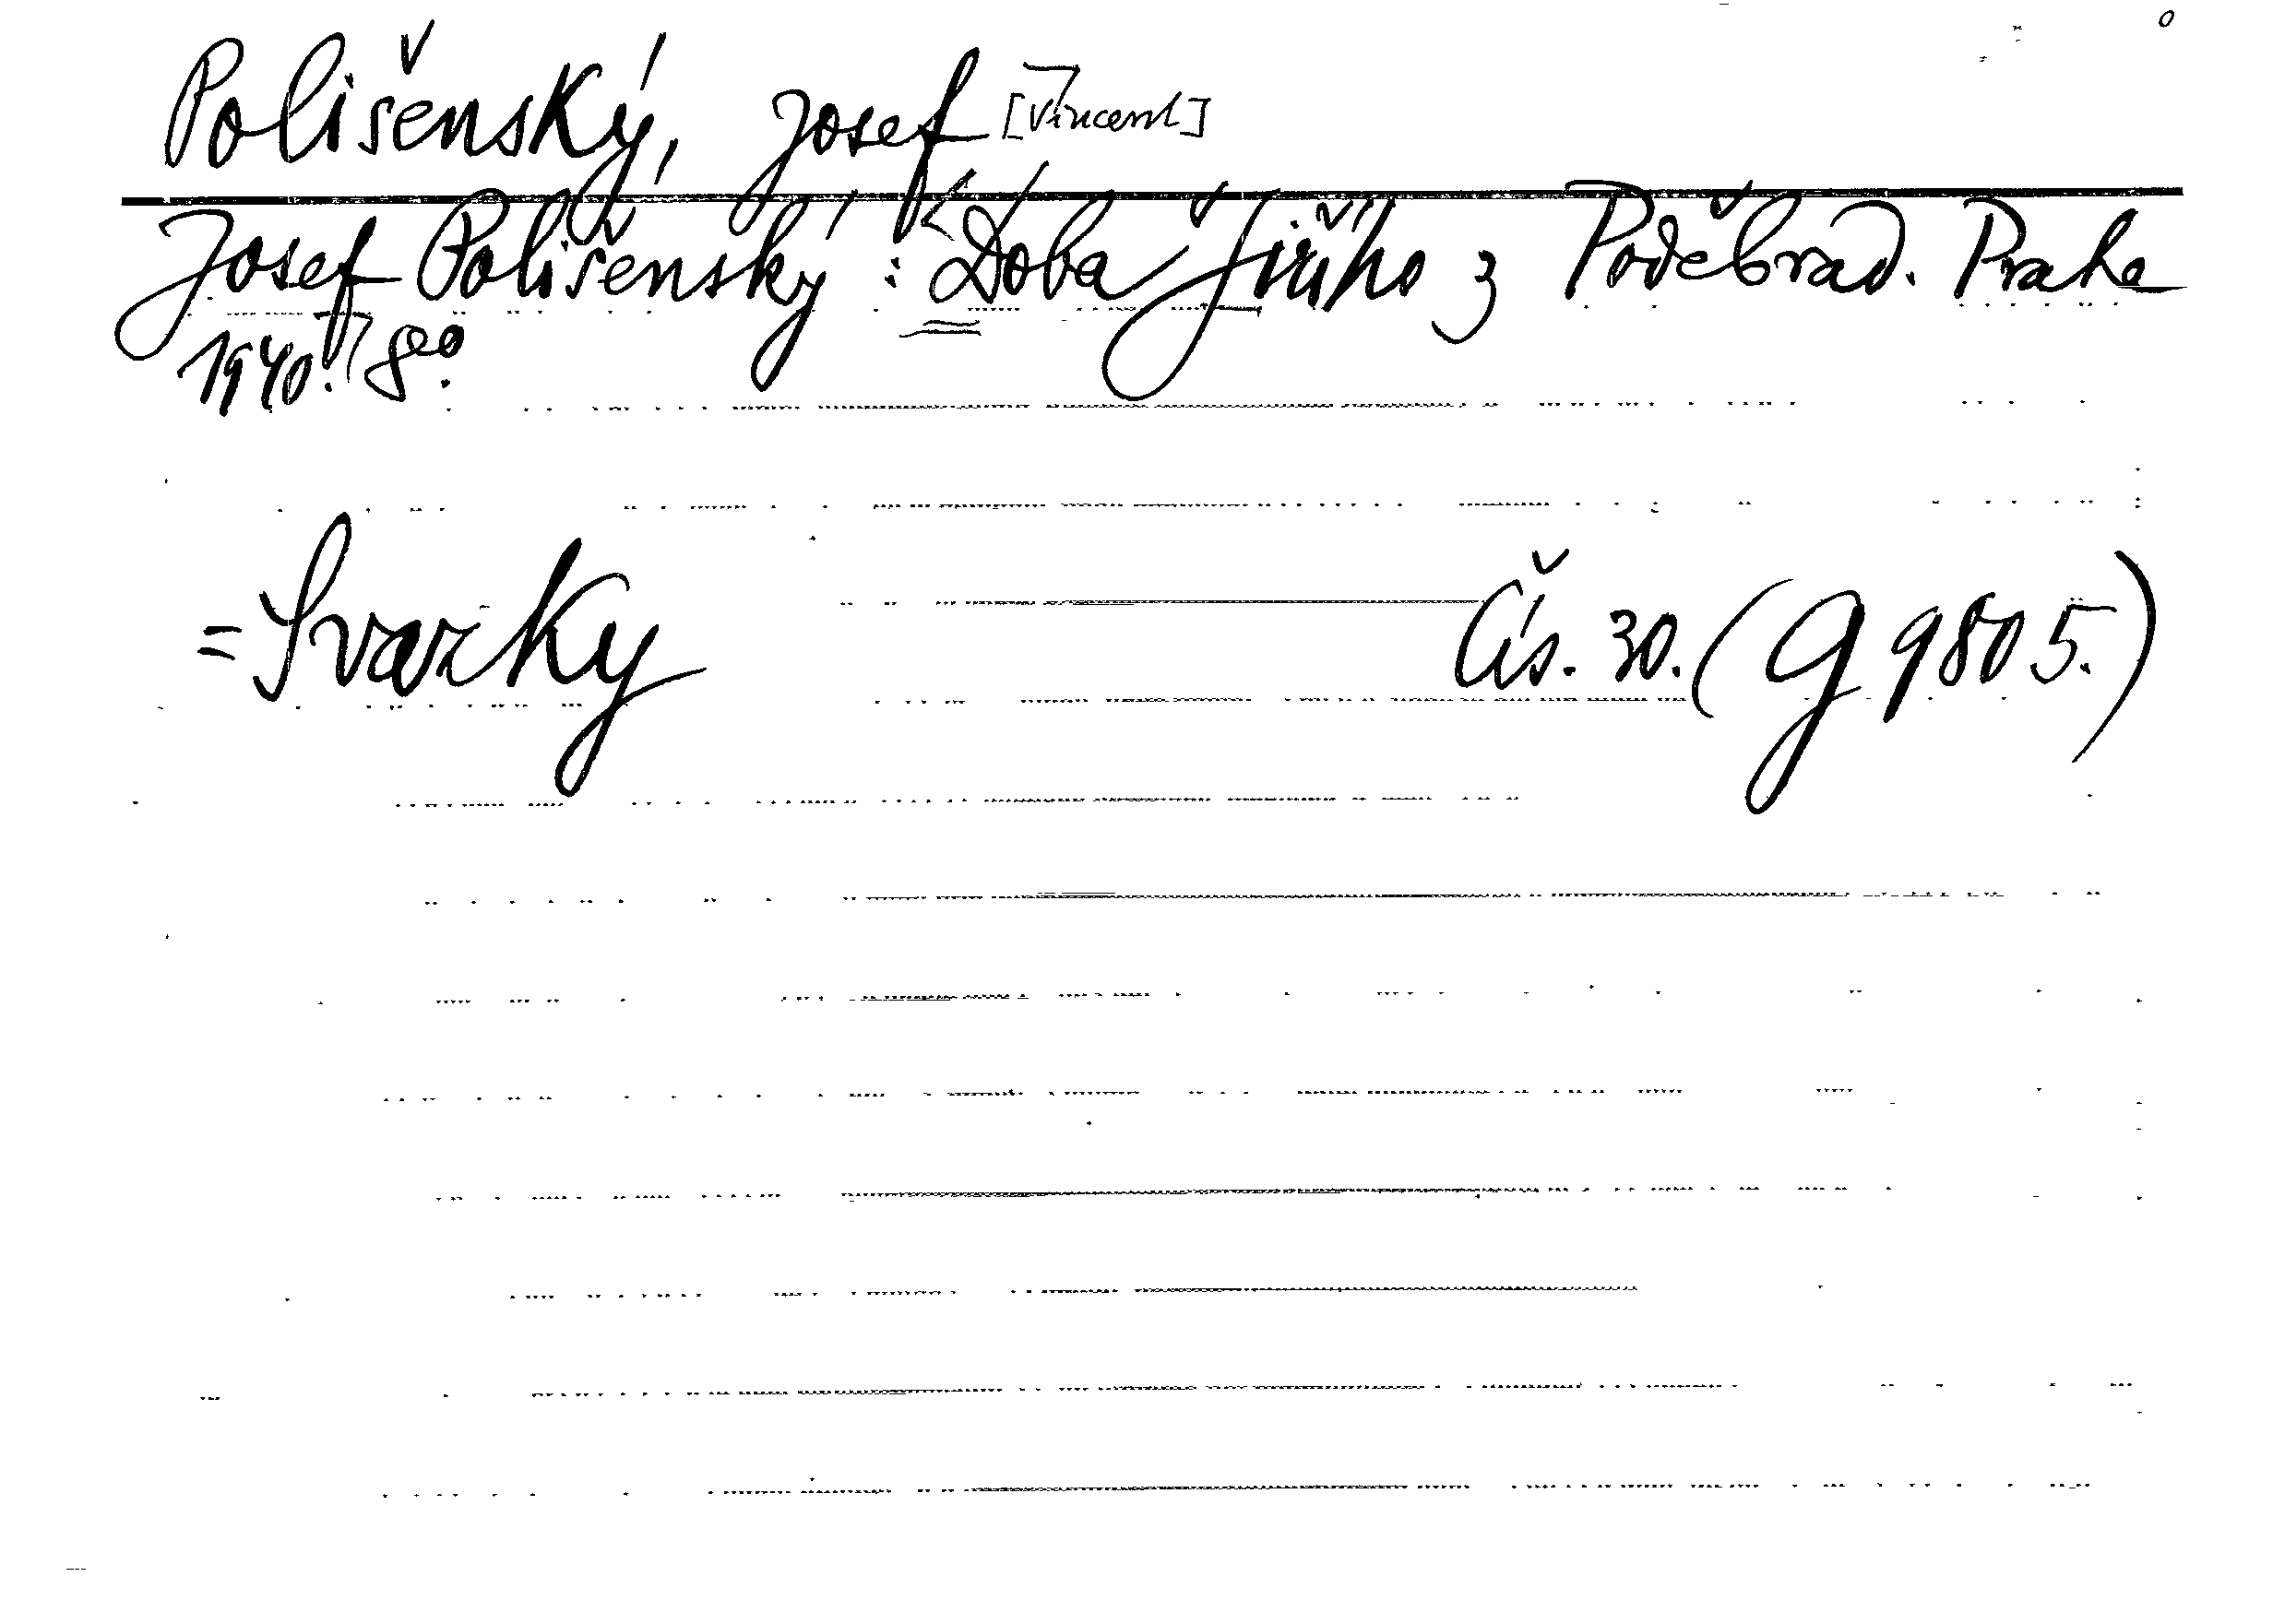 Polišenský, Josef [Vincent]
Josef Polišenský: Doba Jiřího z Poděbrad. Praha
1940. 8°.
= Svazky Čís. 30. (G 9805.)